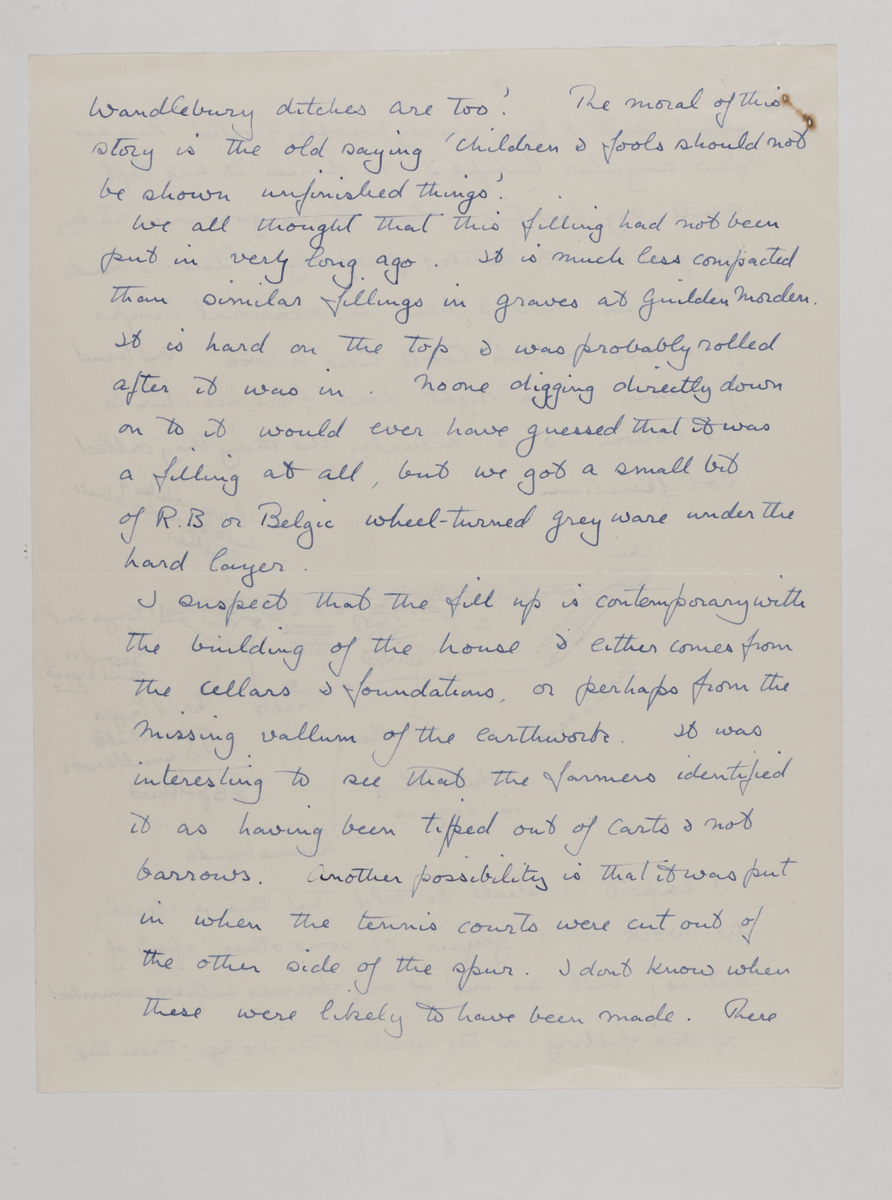 Wandlebury ditches are too'. The moral of this
story is the old saying 'Children & fools should not
be shown unfinished things'.
We all thought that this filling had not been
put in very long ago. It is much less compacted
than similar fillings in graves at Guilden Morden.
It is hard on the top & was probably rolled
after it was in. No one digging directly down
on to it would ever have guessed that it was
a filling at all, but we got a small bit
of R.B or Belgic wheel-turned grey ware under the
hard layer.
I suspect that the fill up is contemporary with
the building of the house & either comes from
the cellars & foundations, or perhaps from the
missing vallum of the earthwork. It was
interesting to see that the farmers identified
it as having been tipped out of carts & not
barrows. Another possibility is that it was put
in when the tennis courts were cut out of
the other side of the spur. I dont know when
these were likely to have been made. There